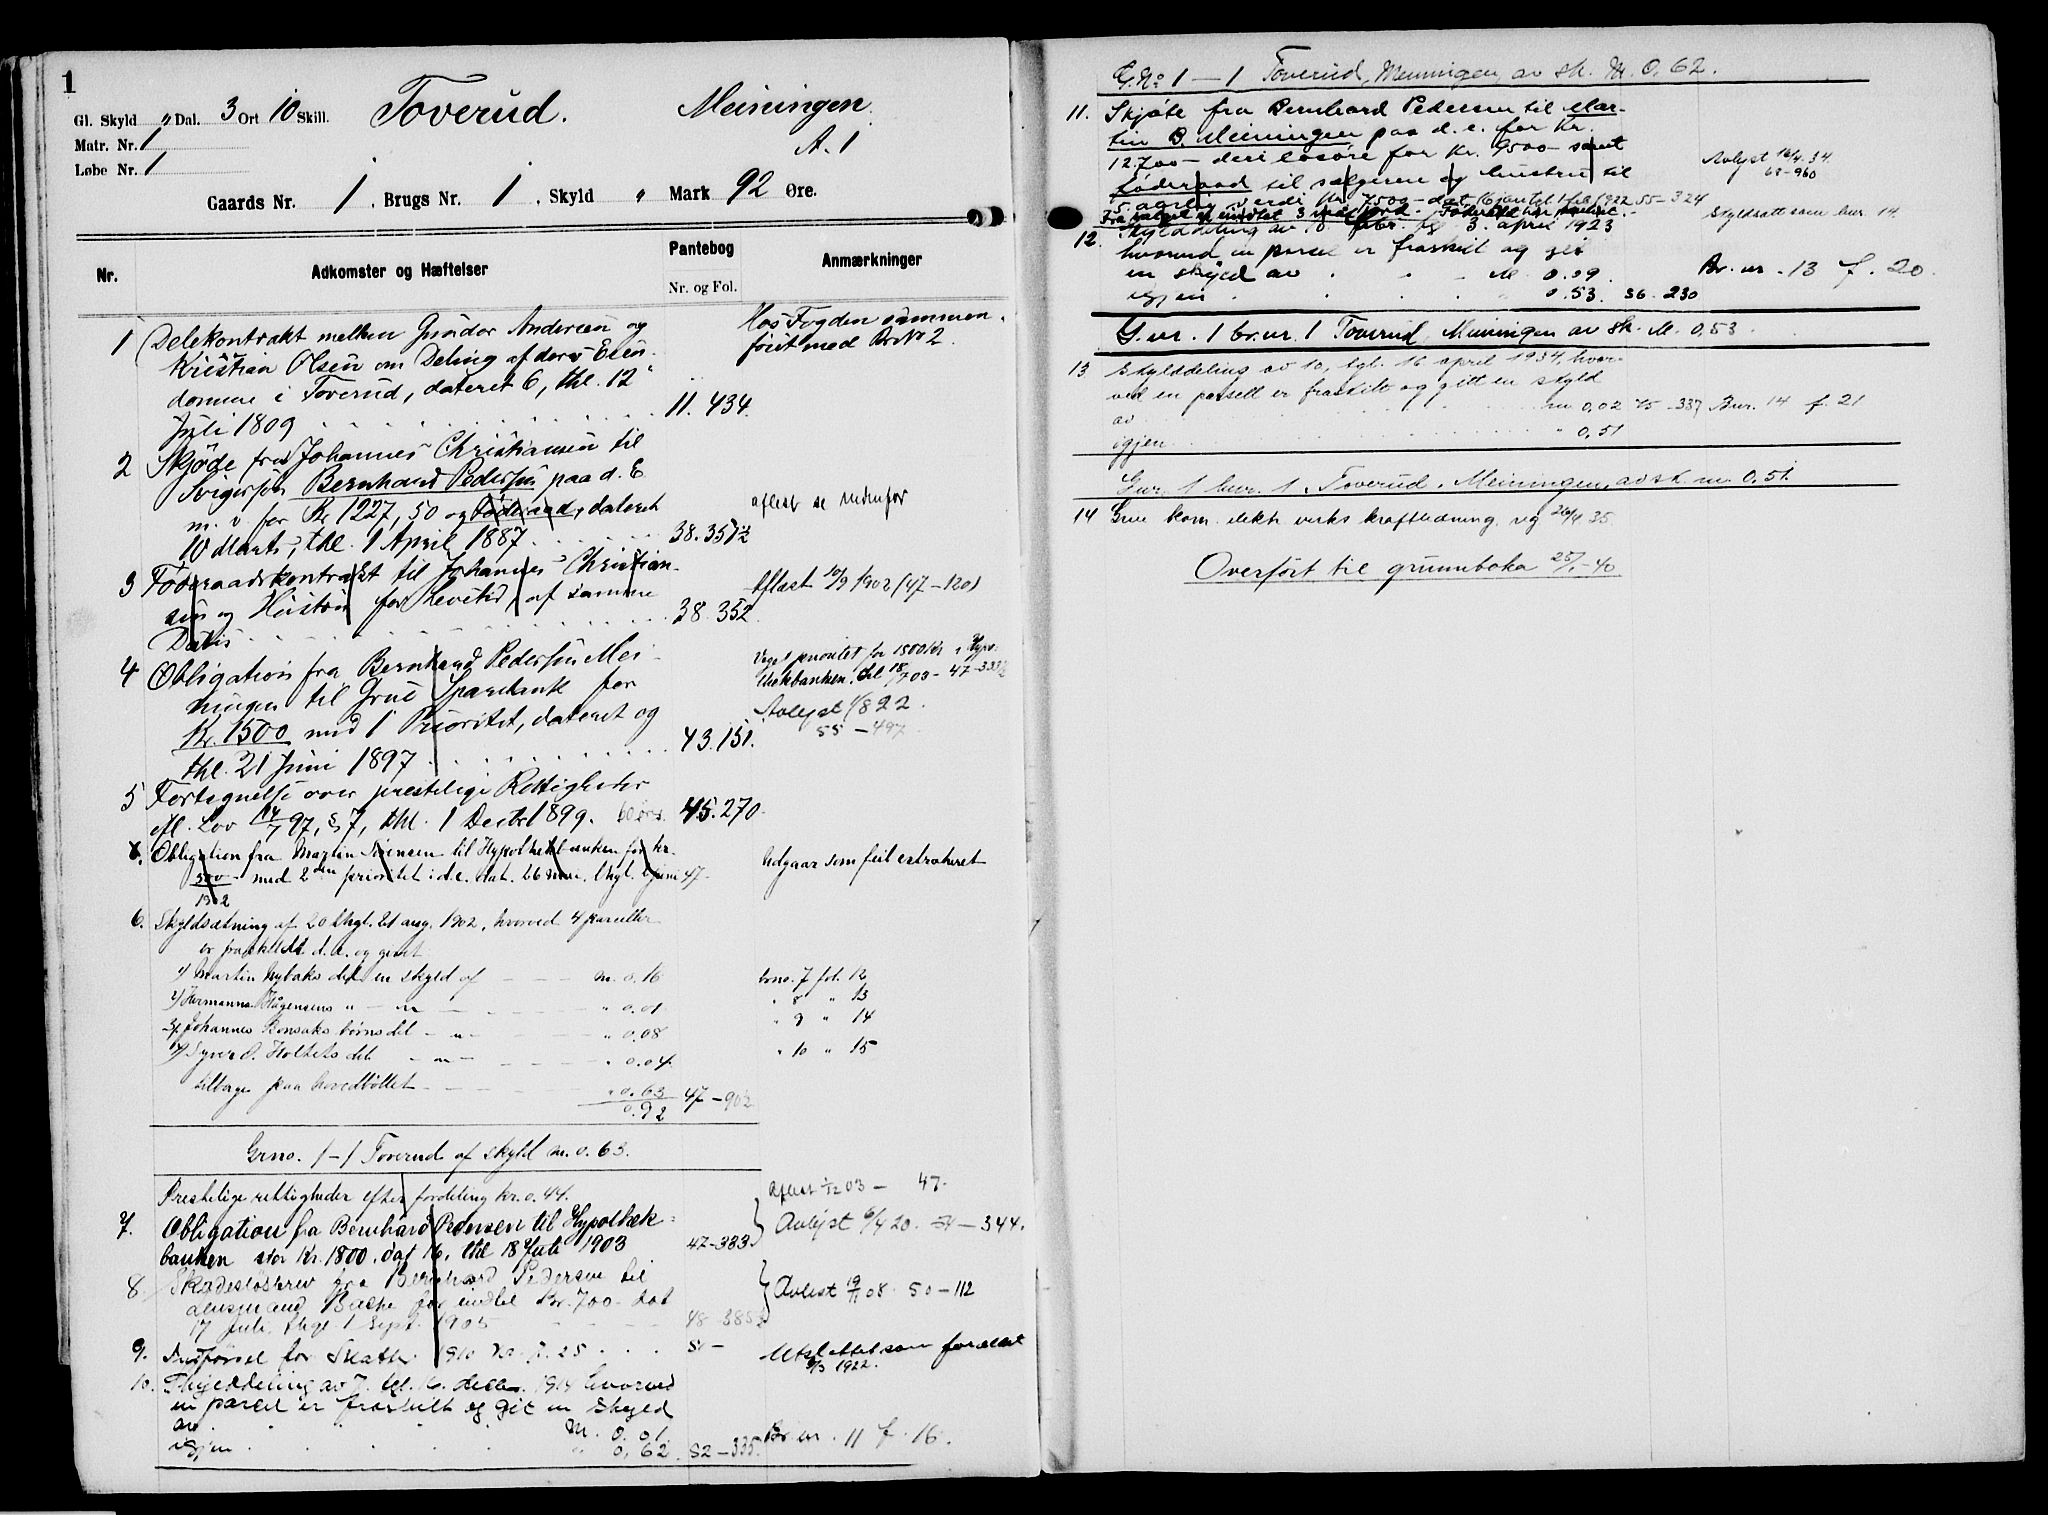 1
Gl. Skyld " Dal. 3 Ort 10 Skill. Toverud. Meiningen.
Matr. Nr. 1 A. 1
Løbe Nr. 1
Gaards Nr. 1. Brugs Nr. 1. Skyld " Mark 92 Øre.
Nr. Adkomster og Hæftelser Pantebog Nr. og Fol. Anmærkninger
1 Delekontrakt mellem Gunder Andersen og Hos Fogden sammen-
Kristian Olsen om Deling af deres Eien- ført med Br No 2.
domme i Toverud, dateret 6, thl. 12
Juli 1809 11. 434.
2 Skjøde fra Johannes Christiansen til
Svigersøn Bernhard Pedersen paa d. E
m. v for Kr 1227,50 og Føderaad, dateret aflest se nedenfor
10 Marts, thl. 1 April 1887 38. 351½
3 Føderaadskontrakt til Johannes Christian-
sen og Hustru for Levetid, af samme Aflæst 10/9 1902 (47-120)
Datis 38. 352.
4 Obligation fra Bernhard Pedersen Mei- Veget prioritet for 1800 Kr i Hypo-
ningen til Grue Sparebank for thekbanken, thl 18/7 03 - 47-383½
Kr. 1500 med 1 Prioritet, dateret og Avlyst 1/8 22.
thl. 21 Juni 1897 43. 151. 55 - 497
5 Fortegnelse over prestelige Rettigheder
efl. Lov 14/7 97, § 7, thl. 1 Decbr 1899. 45. 270.
6. Obligation fra Martin Sørensen til Hypothekbanken for kr. Udgaar som feil extraheret
500 - med 2den prioritet i d.e. dat. 26 mai, thgl. 2 juni 47-
1902
6. Skyldsætning af 20 thgl. 21 aug. 1902, hvorved 4 parceller
er fraskildt d.e. og givet
1/ Martin Nybaks del en skyld af m. 0.16 brno. 7 fol. 12
2/ Hermanna Hågensens " - " " 0.01 " 8 " 13
3/ Johannes Bonsaks børns del - " - " 0.08 " 9 " 14
4/ Syver O. Holtets del - " - " 0.04 " 10 " 15
tilbage paa hovedbøllet " 0.63 47-902
0.92
Grno. 1-1 Toverud af skyld m. 0.63.
Prestelige rettigheder efter fordeling kr. 0.44. Aflest 1/12 03 - 47.
7. Obligation fra Bernhard Pedersen til Hypothek- Avlyst 6/4 20. 54-344.
banken stor Kr. 1800, dat 16, thl 18 Juli 1903 47-383
8. Skadesløsbrev fra Bernhard Pedersen til
Lensmand Bache for indtil Kr. 700 - dat Avlest 19/11 08. 50-112
17 Juli, thgl 1 Sept. 1905 48-385½
9. Indførsel for Skatter 1910 Kr. 7.25 51 - Utslettet som forældet 3/3 1922.
10. Skylddeling av 7. tgl. 16. decbr. 1914 hvorved
en parcel er fraskilt og git en skyld
av M. 0.01 Br nr. 11 f. 16.
igjen " 0.62. 52-335.
G.No 1 - 1 Toverud, Meiningen, av sk. M. 0.62.
11. Skjøte fra Bernhard Pedersen til Mar-
tin B. Meiningen paa d. e. for Kr.
12700 - deri løsøre for Kr. 9500 - samt Avlyst 16/4 34.
føderaad til sælgeren og hustru til 68-960
5 aarlig verdi Kr. 7500 - dat 16 januar tgl 1 feb 1922 55-324
12. Skylddeling av 8. febr. tg 3. april 1923 Skyldsatt som bnr. 14.
hvorved en parcel er fraskilt og git
en skyld av M. 0.09. Br. nr. 13 f. 20.
igjen " 0.53. 56. 230
G.nr. 1 br.nr. 1 Toverud, Meiningen av sk. M. 0,53.
13. Skylddeling av 10, tgl. 16 april 1934, hvor-
ved en parsell er fraskilt og gitt en skyld
av m 0,02 75-387 Bnr. 14 f. 21
igjen " 0,51
Gnr. 1 bnr. 1. Toverud, Meiningen, av sk. m. 0,51.
14 Grue kom. elektr. verks kraftledning. reg 26/4 35.
Overført til grunnboka 25/1-40